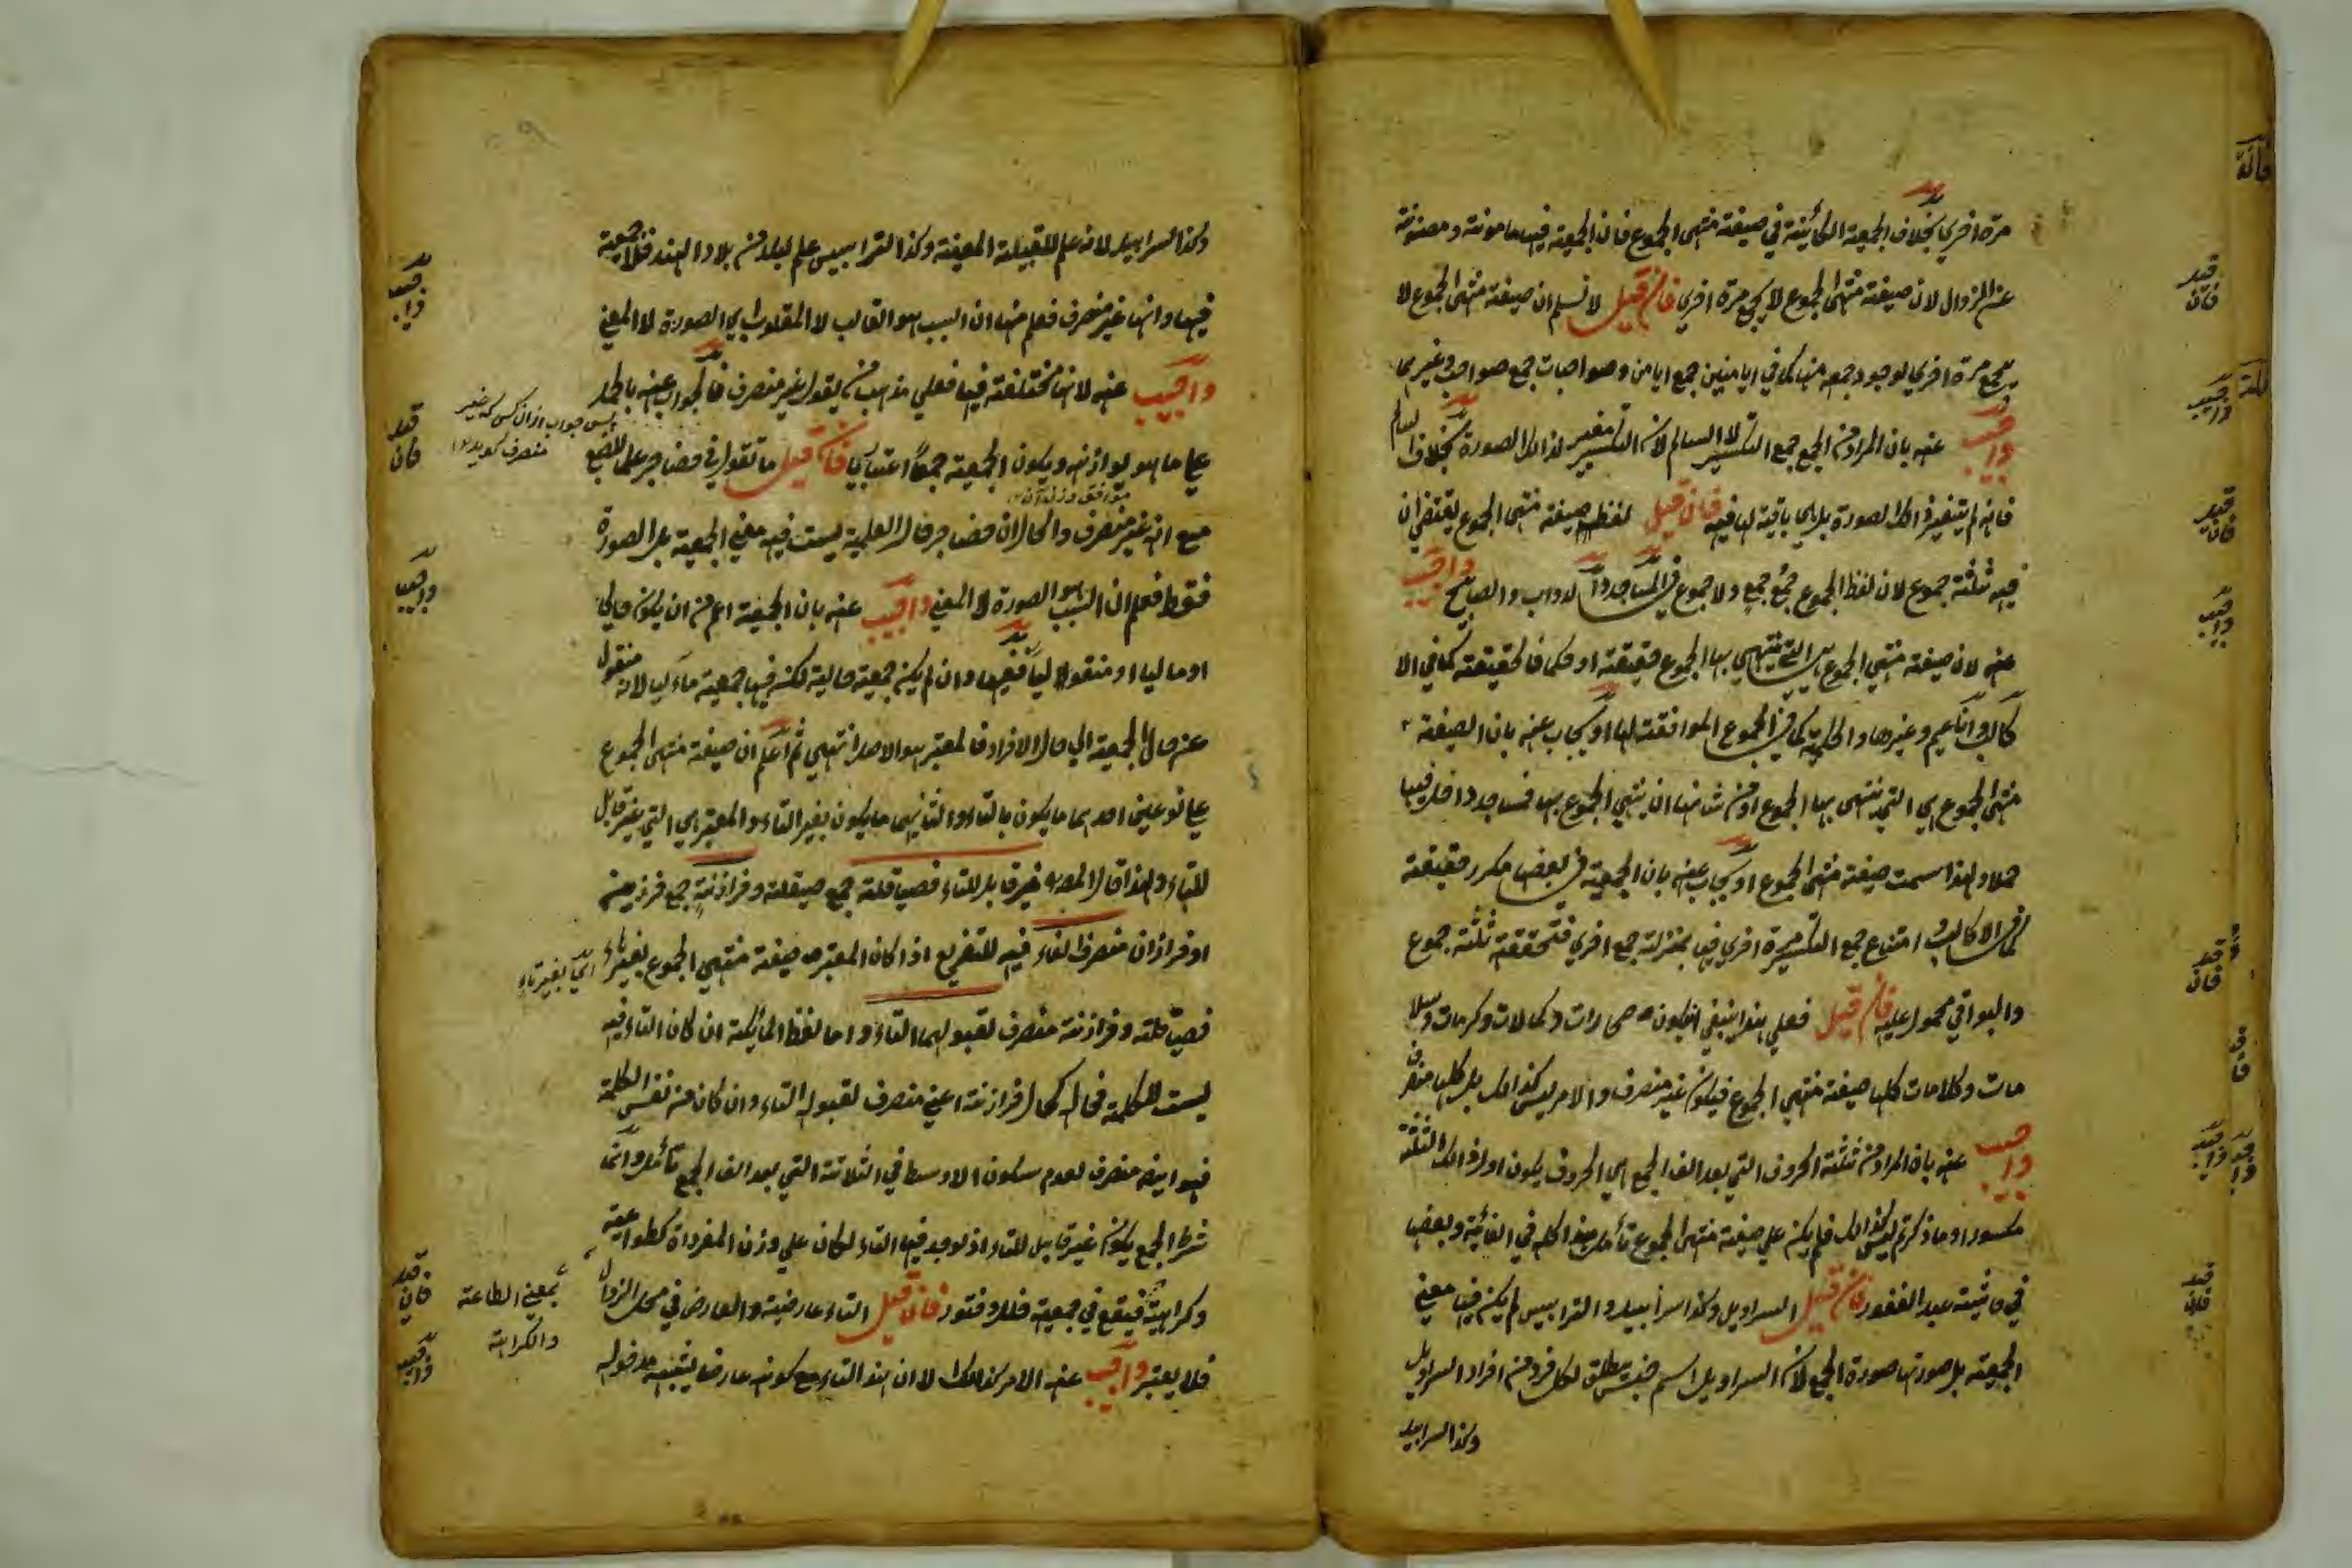 مرة اخري بخلاف الجمعية الكائنة في صيغة منتهى الجموع فان الجمعية فيها مامونة و مصئونة
عن الزوال لان صيغة منتهى الجموع لا يجمع مرة اخري فان قيل لا نسلم ان صيغة منتهى الجموع لا
يجمع مرة اخري لوجود جمعه منها كما في ايامنين جمع ايامن و صواحبات جمع صواحب و غيرهما
واجيب عنه بان المراد من الجمع جمع التكسير لا السالم لان التكسير مغير لذالك الصورة بخلاف السالم
فانه لم يتغير ذالك الصورة بل هي باقية لها فيه فان قيل لفظ صيغة منتهى الجموع يقتضي ان
فيه ثلثة جموع لان لفظ الجموع جمع جمع ولا جموع في المساجد و الدواب و المصابيح واجيب
عنه لان صيغة منتهي الجموع هي التي ينتهي بها الجموع حقيقة او حكما فالحقيقة كما في الا
كالب و اناعيم و غيرها و الحكمية كما في الجموع الموافقة لها او يجاب عنه بان الصيغة
منتهى الجموع هي التي تنتهى بها الجموع او من شانها ان ينتهي الجموع بها فمساجد داخل فيها
حملا و لهذا سميت صيغة منتهى الجموع او يجاب عنه بان الجمعية في بعضها مكرر حقيقة
كما في الاكالب و امتناع جمع التكسير مرة اخري فيها بمنزلة جمع اخري فتحققت ثلثة جموع
و البواقي محمول عليه فان قيل فعلي هذا ينبغي ان يكون حمارات و كمالات و كرمات و سلا
مات و كلامات كلها صيغة منتهي الجموع فيكون غير منصرف و الامر ليس كذالك بل كلها منصرف
واجيب عنه بان المراد من ثلثة الحروف التي بعد الف الجمع هي الحروف يكون اول ذالك الثلثة
مكسورا و ما ذكرتم ليس كذالك فلم يكن علي صيغة منتهى الجموع تأمل هذا كله في الغائية و بعضها
في حاشية عبد الغفور فان قيل السراويل و كذا سرابيل و الترابيس لم يكن فيها معني
الجمعية بل صورتها صورة الجمع لان السراويل اسم جنس يطلق لكل فرد من افراد السراويل
وكذا السرابيل
وكذا السرابيل لانه علم للقبيلة المعينة و كذا الترابيس علم لبلد من بلاد الهند فلا جمعية
فيها و انها غير منصرف فعلم منها ان السبب هو القالب لا المقلوب اي الصورة لا المعني
واجيب عنه لانها مختلفة فيها فعلي مذهب من يقول غير منصرف فالجواب عنه بالحمل
علي ما هو يوازنه و يكون الجمعية جمعا اعتباريا فان قيل ما تقول في حضاجر علما للضبع
مع انه غير منصرف والحال ان حضاجر في حال العلمية ليست فيه معني الجمعية بل الصورة
فقط فعلم ان السبب هو الصورة لا المعني واجيب عنه بان الجمعية اعم من ان يكون حاليا
او ماليا او منقولا ليا ففيها و ان لم يكن جمعية حالية لكنه فيها جمعية ماليا لانه منقول
عن حال الجمعية الي حال الافراد فالمعتبر هو الاصل انتهي ثم اعلم ان صيغة منتهى الجموع
علي نوعين احدهما ما يكون بالتاء و الثانيهما ما يكون بغير التاء و المعتبر هي التي غير قابل
للتاء و لهذا قال المص غير قابل للتاء فصياقلة جمع صيقلة و فرازنة جمع فرزين
او فرازان منصرف الفاء فيه للتفريع اذا كان المعتبر صيغة منتهي الجموع بغير هاء
فصياقلة و فرازنة منصرف لقبولهما التاء و اما لفظ الملائكة ان كان التاء فيه
ليست للكلمة فحاله كحال فرازنة اعني منصرف لقبوله التاء و ان كان من نفس الكلمة
فهو ايضا منصرف لعدم سكون الاوسط في الثلاثة التي بعد الف الجمع تأمل و انما
شرط الجمع يكون غير قابل للتاء اذ لو وجد فيها التاء لكان علي وزن المفرداة كطواعية
و كراهية فيقع في جمعيته خلل و فتور فان قيل التاء عارضية و العارض في محل الزوال
فلا يعتبر واجيب عنه الامر كذالك الا ان هذا التاء مع كونه عارضا يشبه مدخوله
پس جواب ازان کس که غیر
منصرف گوید
موافق وزن آن
اي بغير تاء
بمعني الطاعة
والكراهة